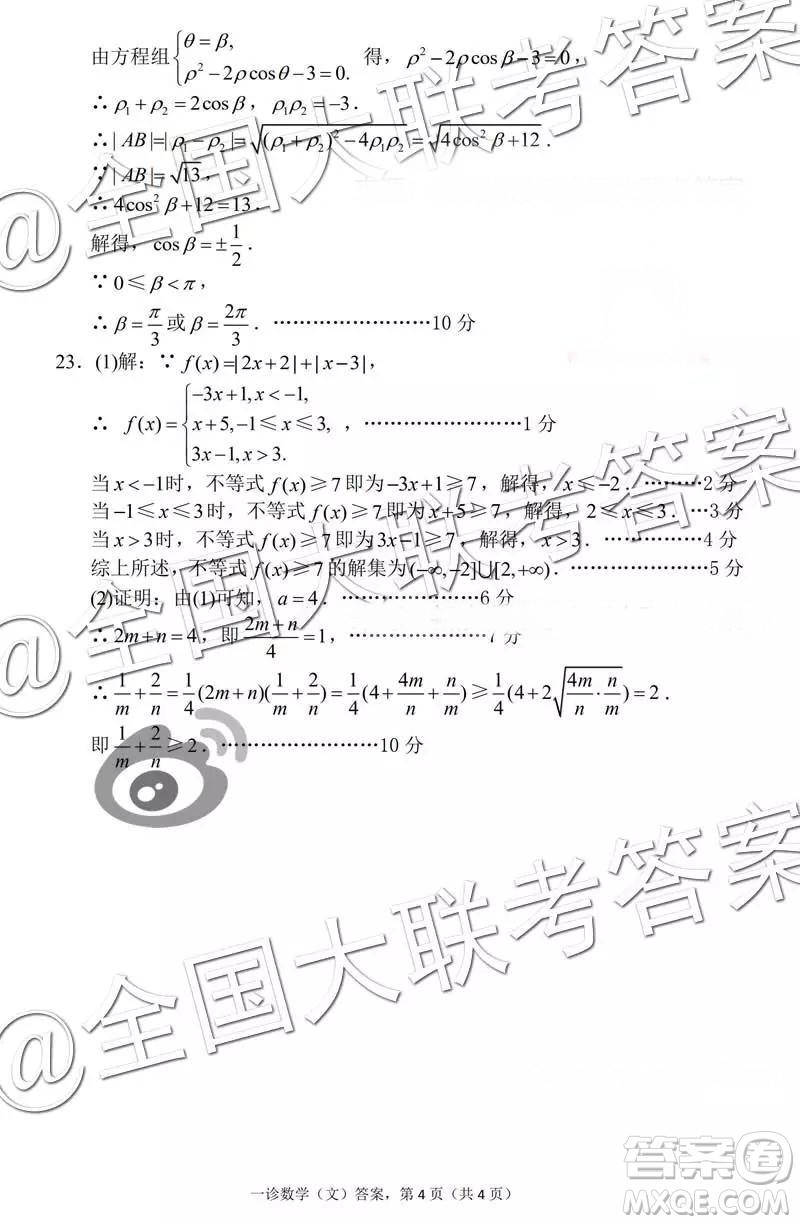 由方程组{θ=β, ρ²−2ρcosθ−3=0. 得，ρ²−2ρcosβ−3=0，
∴ρ₁+ρ₂=2cosβ，ρ₁ρ₂=−3．
∴|AB|=|ρ₁−ρ₂|=√((ρ₁+ρ₂)²−4ρ₁ρ₂)=√(4cos²β+12)．
∵|AB|=√13，
∴4cos²β+12=13．
解得，cosβ=±1/2．
∵0≤β<π，
∴β=π/3或β=2π/3．……………………10 分
23．(1)解：∵f(x)=|2x+2|+|x−3|，
∴ f(x)={−3x+1, x<−1, x+5, −1≤x≤3, 3x−1, x>3. ，……………………1 分
当x<−1时，不等式f(x)≥7即为−3x+1≥7，解得，x≤−2．………2 分
当−1≤x≤3时，不等式f(x)≥7即为x+5≥7，解得，2≤x≤3．…3 分
当x>3时，不等式f(x)≥7即为3x−1≥7，解得，x>3．……………4 分
综上所述，不等式f(x)≥7的解集为(−∞,−2]∪[2,+∞)．……………………5 分
(2)证明：由(1)可知，a=4．…………………6 分
∴2m+n=4，即(2m+n)/4=1，…………………7 分
∴1/m+2/n=1/4(2m+n)(1/m+2/n)=1/4(4+4m/n+n/m)≥1/4(4+2√(4m/n·n/m))=2．
即1/m+2/n≥2．……………………10 分
@全国大联考答案
@全国大联考答案
@全国大联考答案
答案卷
MXQE.COM
一诊数学（文）答案，第 4 页（共 4 页）